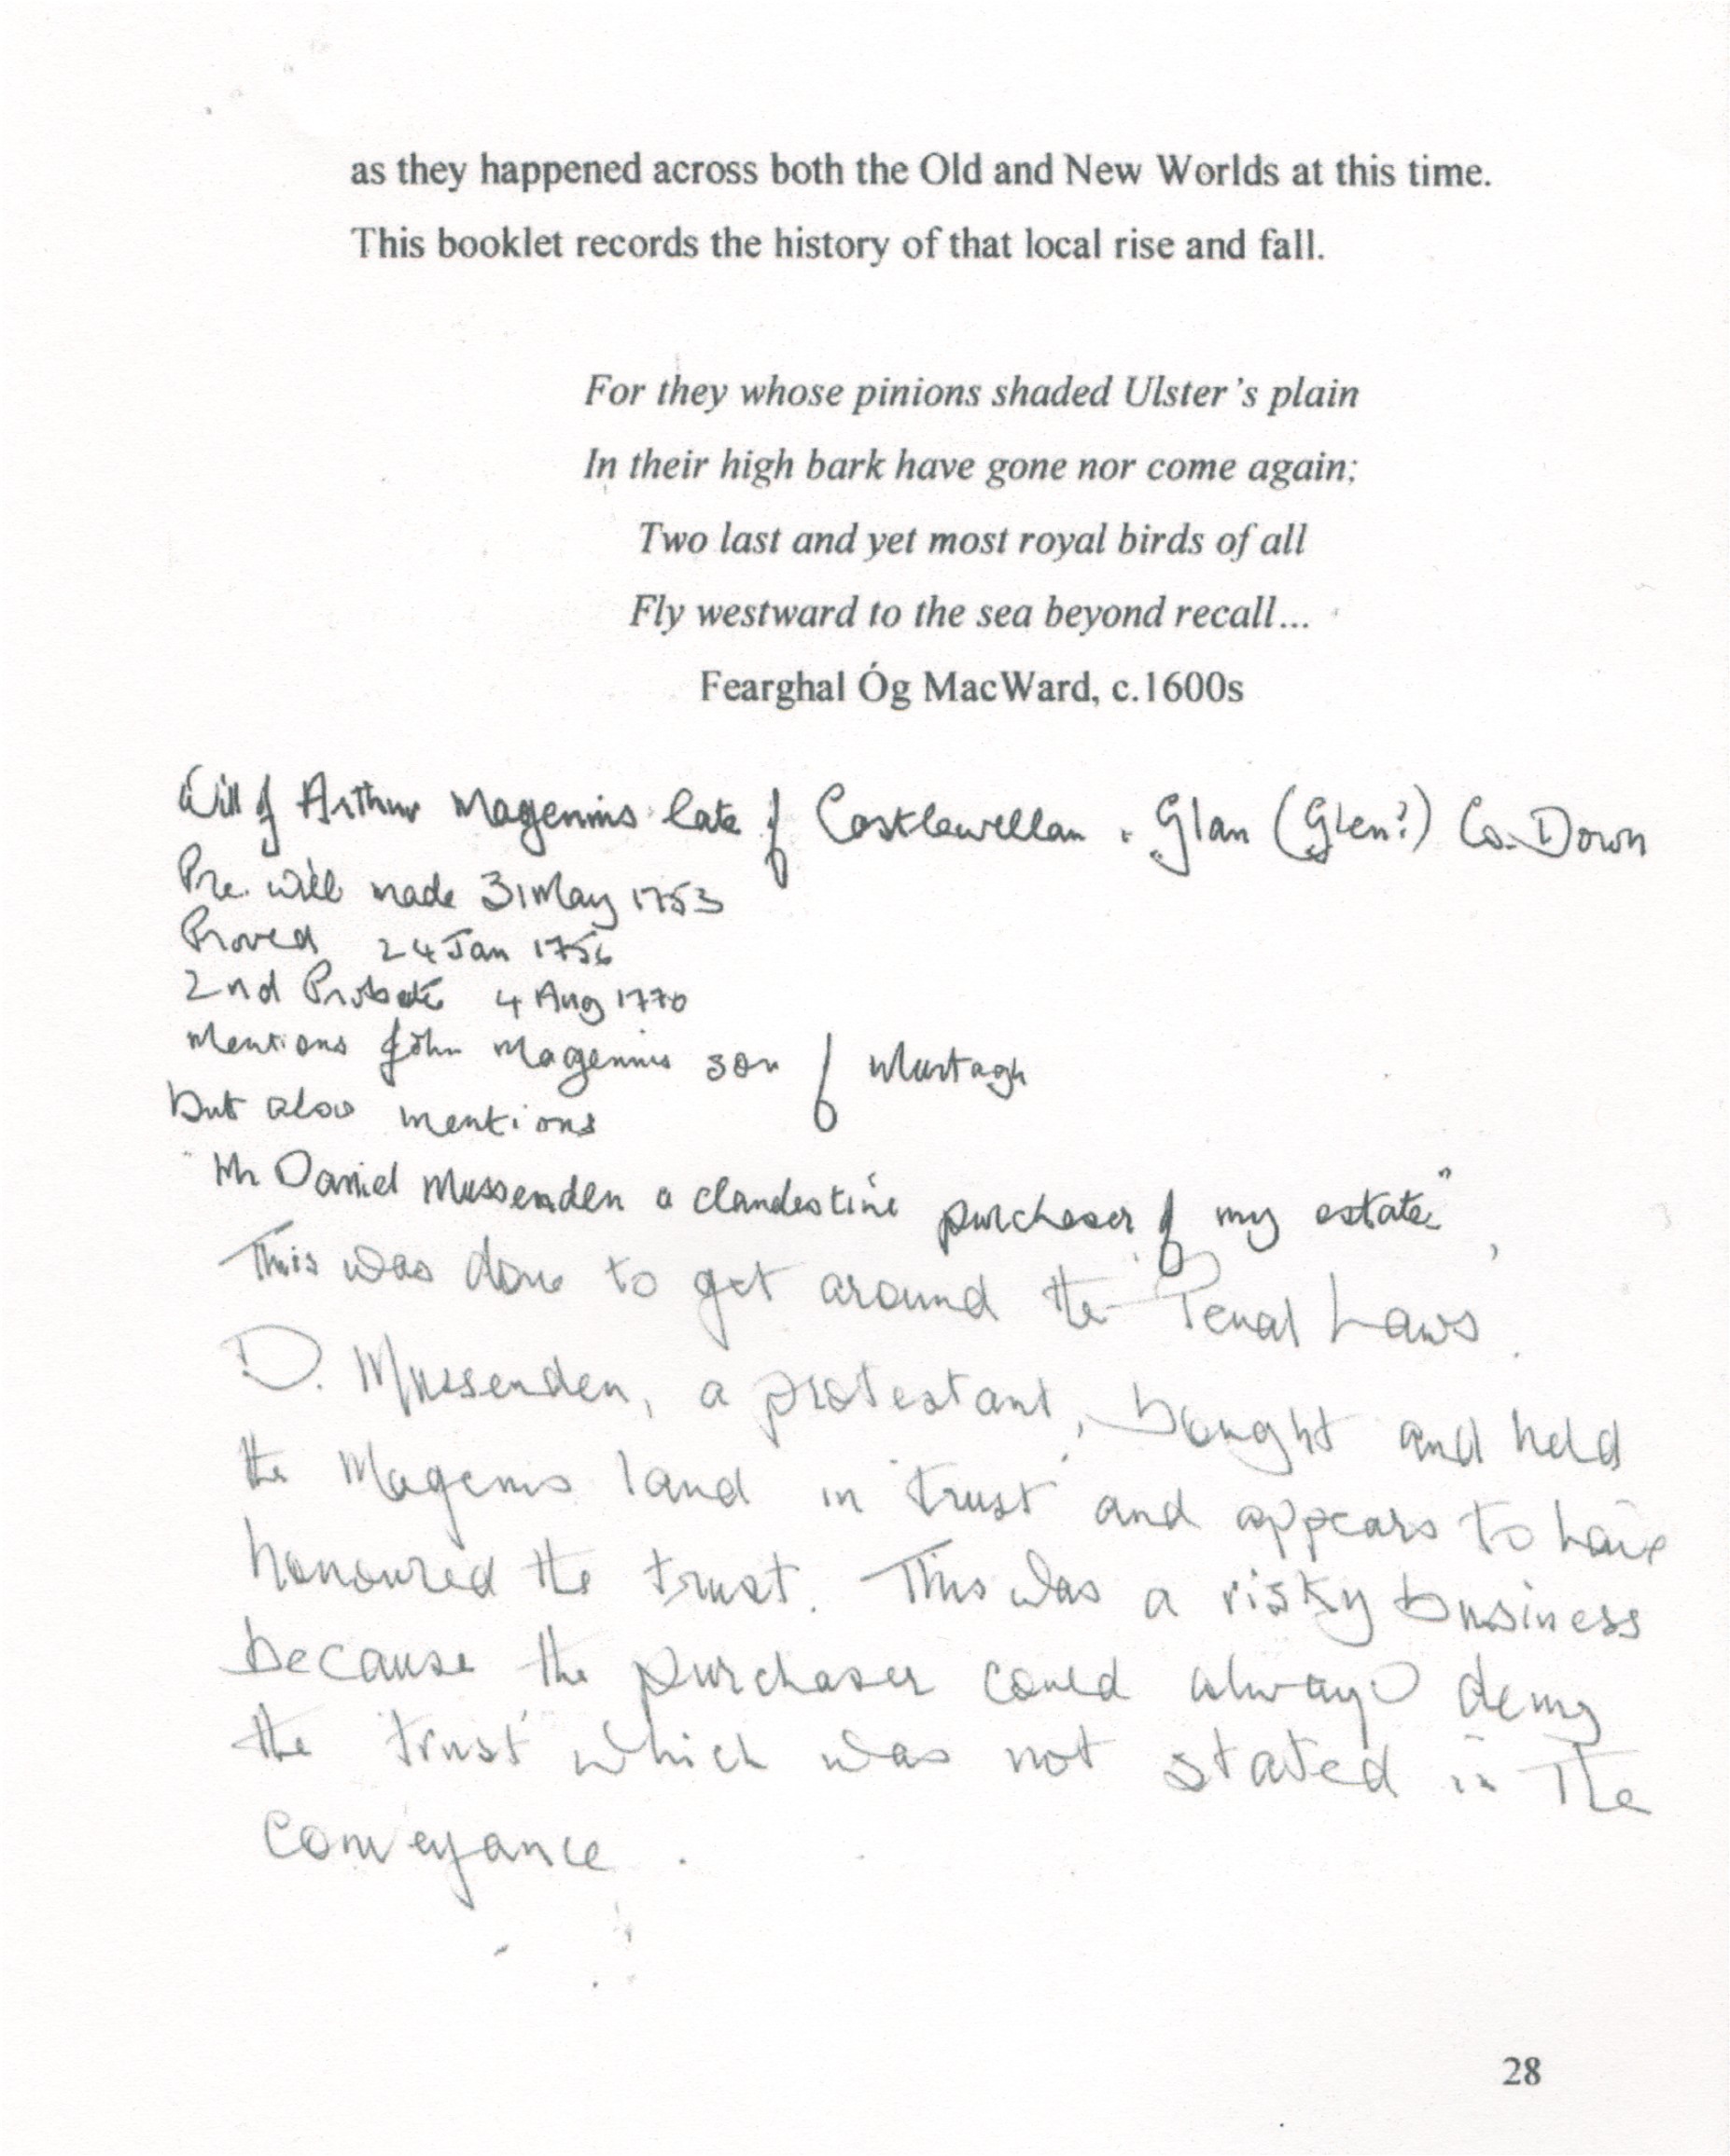 as they happened across both the Old and New Worlds at this time.
This booklet records the history of that local rise and fall.
For they whose pinions shaded Ulster's plain
In their high bark have gone nor come again;
Two last and yet most royal birds of all
Fly westward to the sea beyond recall...
Fearghal Óg MacWard, c.1600s
Will of Arthur Magennis late of Castlewellan . Glan (Glen?) Co. Down
Pre. will made 31 May 1753
Proved 24 Jan 1756
2nd Probate 4 Aug 1770
Mentions John Magennis son of Murtagh
but also mentions
"Mr Daniel Mussenden a clandestine purchaser of my estate"
This was done to get around the Penal Laws.
D. Mussenden, a protestant, bought and held
the Magenis land in 'trust' and appears to have
honoured the trust. This was a risky business
because the purchaser could always deny
the 'trust' which was not stated in the
conveyance.
28